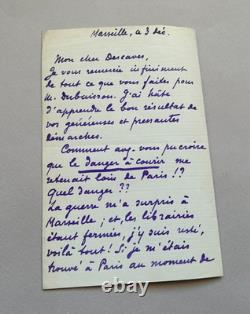 Marseille, a 3 déc.
Mon cher Descaves,
Je vous remercie infiniment
de tout ce que vous faites pour
M. Dubuisson. J'ai hâte
d'apprendre le bon résultat de
vos généreuses et pressantes
démarches.
Comment avez-vous pu croire
que le danger à courir me
retenait loin de Paris !?
Quel danger ??
La guerre m'a surpris à
Marseille ; et, les librairies
étant fermées, j'y suis resté,
voilà tout ! Si je m'étais
trouvé à Paris au moment de
© 123rf.com